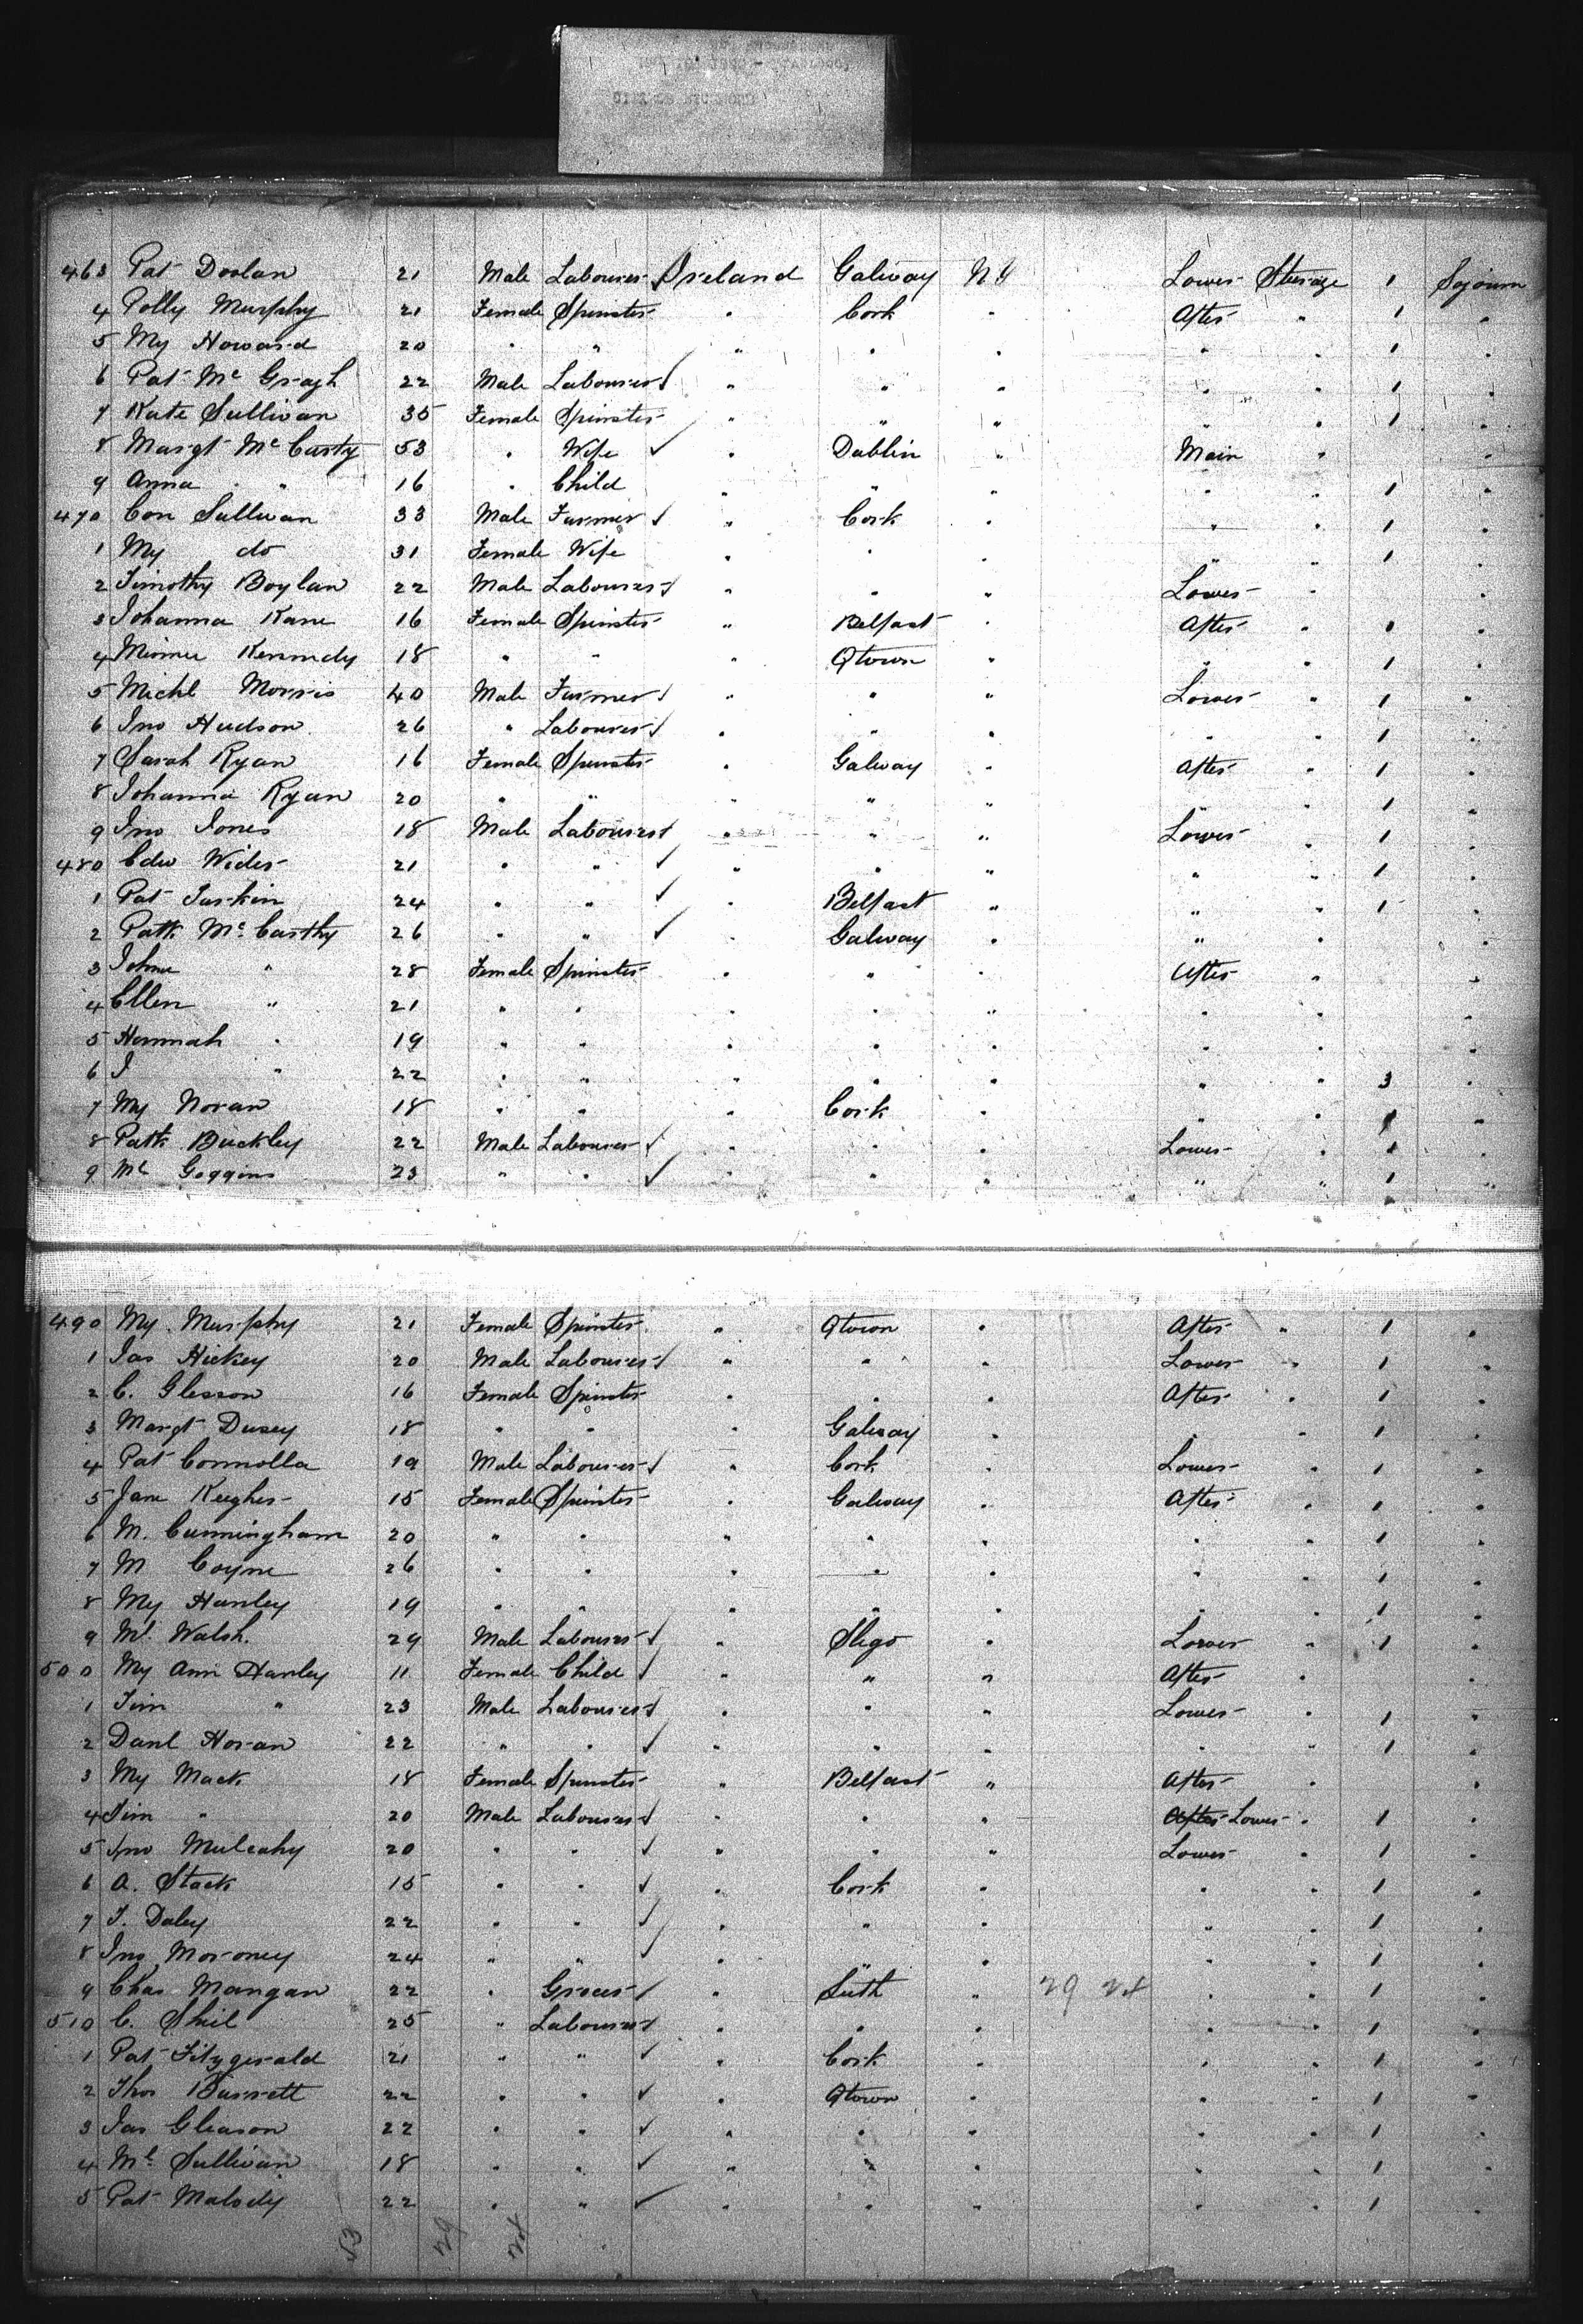 463 Pat Doolan 21 Male Labourer Ireland Galway NY Lower Steerage 1 Sojourn
4 Polly Murphy 21 Female Spinster " Cork " After " 1 "
5 My Howard 20 " " " " " " " 1 "
6 Pat Mc Gragh 22 Male Labourer " " " " " 1 "
7 Kate Sullivan 35 Female Spinster " " " " " 1 "
8 Margt Mc Carty 53 " Wife " Dublin " Main " "
9 Anna " 16 " Child " " " " " 1 "
470 Con Sullivan 33 Male Farmer " Cork " " " 1 "
1 My do 31 Female Wife " " " " " 1 "
2 Timothy Boylan 22 Male Labourer " " " Lower " "
3 Johanna Kane 16 Female Spinster " Belfast " After " 1 "
4 Minnie Kennedy 18 " " " Qtown " " " 1 "
5 Michl Morris 40 Male Farmer " " " Lower " 1 "
6 Jno Hudson 26 " Labourer " " " " " 1 "
7 Sarah Ryan 16 Female Spinster " Galway " After " 1 "
8 Johanna Ryan 20 " " " " " " " 1 "
9 Jno Jones 18 Male Labourer " " " Lower " 1 "
480 Edw Wider 21 " " " " " " " 1 "
1 Pat Larkin 24 " " " Belfast " " " 1 "
2 Patk Mc Carthy 26 " " " Galway " " " "
3 " 28 Female Spinster " " " After " "
4 Ellen " 21 " " " " " " " "
5 Hannah " 19 " " " " " " " "
6 J " 22 " " " " " " " 3 "
7 My Horan 18 " " " Cork " " " 1 "
8 Patk Buckley 22 Male Labourer " " " Lower " 1 "
9 Ml Goggins 23 " " " " " " " 1 "
490 My Murphy 21 Female Spinster " Qtown " After " 1 "
1 Jas Hickey 20 Male Labourer " " " Lower " 1 "
2 C. Gleeson 16 Female Spinster " " " After " 1 "
3 Margt Ducey 18 " " " Galway " " " 1 "
4 Pat Connolla 19 Male Labourer " Cork " Lower " 1 "
5 Jane Keugher 15 Female Spinster " Galway " After " 1 "
6 M. Cunningham 20 " " " " " " " 1 "
7 M Coyne 26 " " " " " " " 1 "
8 My Hanley 19 " " " " " " " 1 "
9 Ml. Walsh. 29 Male Labourer " Sligo " Lower " 1 "
500 My Ann Hanley 11 Female Child " " " After " "
1 Tim " 23 Male Labourer " " " Lower " 1 "
2 Danl Horan 22 " " " " " " " 1 "
3 My Mack 18 Female Spinster " Belfast " After " "
4 Jim " 20 Male Labourer " " " After Lower " 1 "
5 Jno Mulcahy 20 " " " " " Lower " 1 "
6 A. Stack 15 " " " Cork " " " 1 "
7 T. Daley 22 " " " " " " " 1 "
8 Jno Moroney 24 " " " " " " " 1 "
9 Chas Mangan 22 " Grocer " Luth " 29 24 " " 1 "
510 C. Shiel 25 " Labourer " " " " " 1 "
1 Pat Fitzgerald 21 " " " Cork " " " 1 "
2 Thos Barrett 22 " " " Qtown " " " 1 "
3 Jas Gleason 22 " " " " " " " 1 "
4 Ml Sullivan 18 " " " " " " " 1 "
5 Pat Malody 22 " " " " " " " 1 "
53 29 24